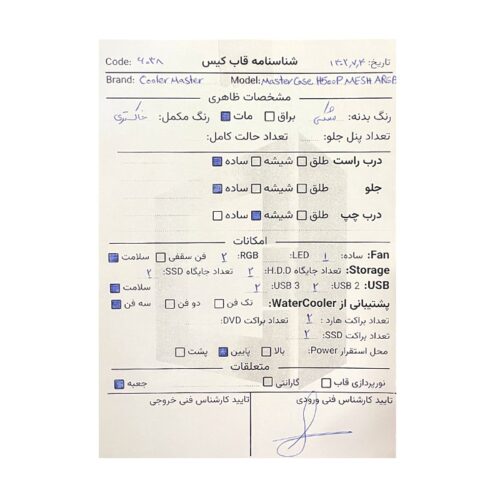 تاریخ: ۱۴۰۲,۷,۴ شناسنامه قاب کیس Code: ۹۰۳۸
Brand: Cooler Master Model: MasterCase H500P MESH ARGB
مشخصات ظاهری
رنگ بدنه: مشکی براق مات رنگ مکمل: خاکستری
تعداد پنل جلو: تعداد حالت کامل:
درب راست طلق شیشه ساده
جلو طلق شیشه ساده
درب چپ طلق شیشه ساده
امکانات
Fan: ساده: ۱ LED: RGB: ۲ فن سقفی سلامت
Storage: تعداد جایگاه H.D.D: ۲ تعداد جایگاه SSD: ۲
USB: USB 2: ۲ USB 3: ۲ سلامت
پشتیبانی از WaterCooler: تک فن دو فن سه فن
تعداد براکت هارد: ۲ تعداد براکت DVD:
تعداد براکت SSD: ۲
محل استقرار Power: بالا پایین پشت
متعلقات
نورپردازی قاب گارانتی جعبه
تایید کارشناس فنی ورودی تایید کارشناس فنی خروجی